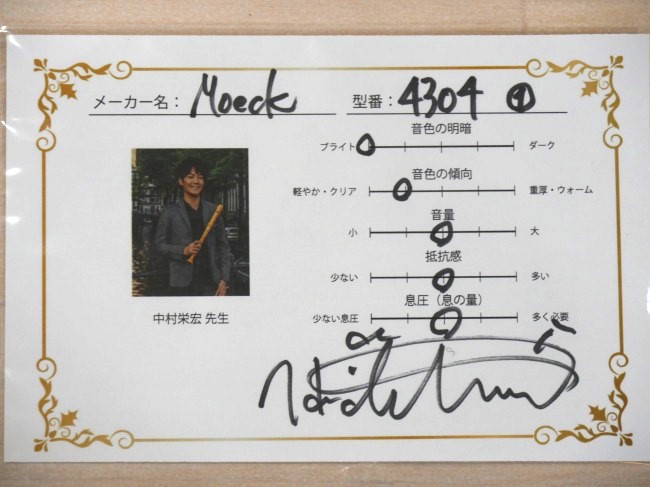 メーカー名： Moeck 型番： 4304 ①
音色の明暗
ブライト ダーク
音色の傾向
軽やか・クリア 重厚・ウォーム
音量
小 大
抵抗感
少ない 多い
息圧（息の量）
少ない息圧 多く必要
中村栄宏 先生